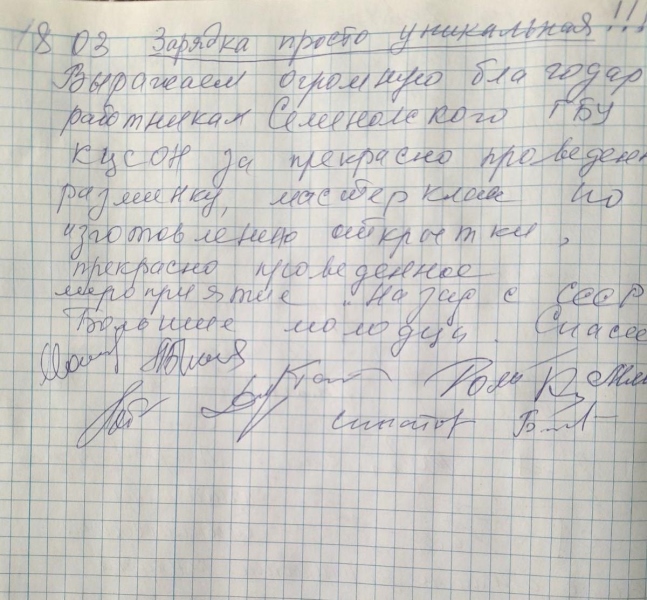 18 03 Зарядка просто уникальная!!!
Выражаем огромную благодар
работникам Семеновского ГБУ
КЦСОН за прекрасно проведен
разминку, мастер клас по
изготовлению открытки,
прекрасно проведенное
мероприятие "Назад с СССР
Большие молодцы. Спасе